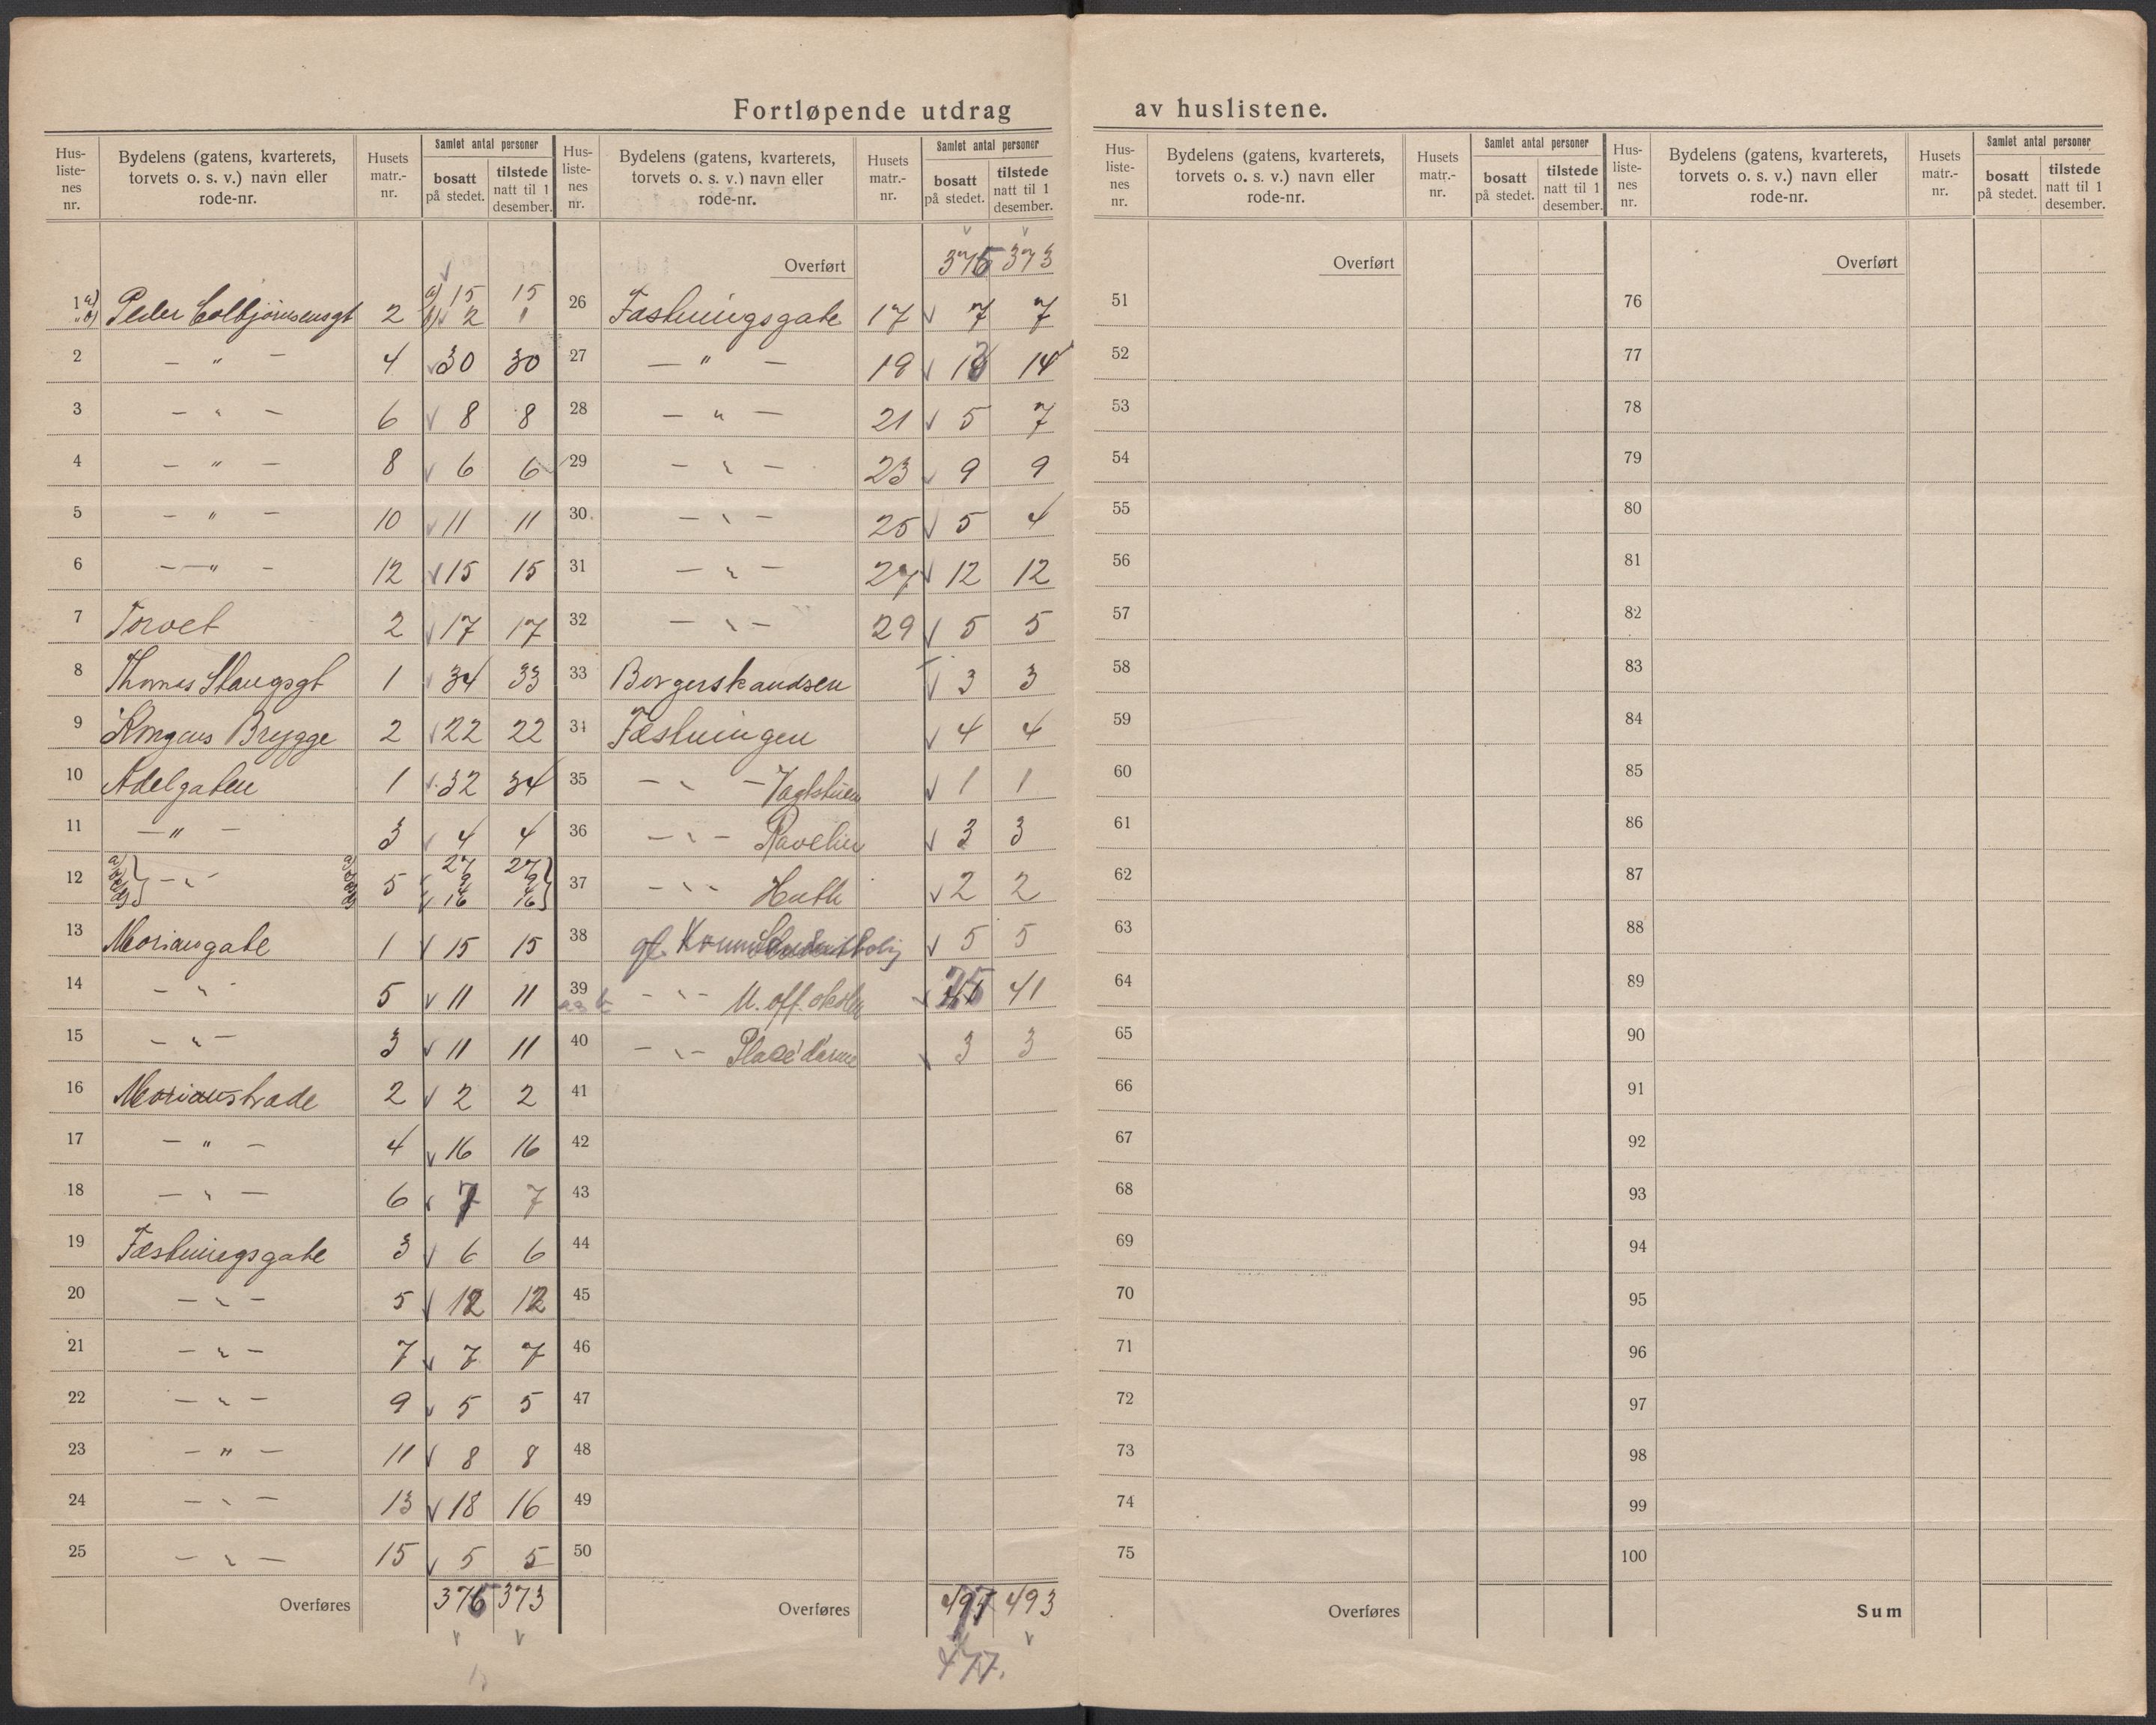 Fortløpende utdrag av huslistene.
Hus-listenes nr. | Bydelens (gatens, kvarterets, torvets o. s. v.) navn eller rode-nr. | Husets matr.-nr. | Samlet antal personer | bosatt på stedet. | tilstede natt til 1 desember.
1 a) „ b) Peder Colbjørnsensgt 2 a) 15 15
b) 2 1
2 — " — 4 30 30
3 — " — 6 8 8
4 — " — 8 6 6
5 — " — 10 11 11
6 — " — 12 15 15
7 Torvet 2 17 17
8 Thomas Stangsgt 1 34 33
9 Kongens Brygge 2 22 22
10 Adelgaten 1 32 34
11 — " — 3 4 4
12 — " — 5 27 27
9 9
16 16
13 Moriangate 1 15 15
14 — " — 5 11 11
15 — " — 3 11 11
16 Morianstrade 2 2 2
17 — " — 4 16 16
18 — " — 6 7 7
19 Fæstningsgate 3 6 6
20 — " — 5 12 12
21 — " — 7 7 7
22 — " — 9 5 5
23 — " — 11 8 8
24 — " — 13 18 16
25 — " — 15 5 5
Overføres 376 373
Hus-listenes nr. | Bydelens (gatens, kvarterets, torvets o. s. v.) navn eller rode-nr. | Husets matr.-nr. | Samlet antal personer | bosatt på stedet. | tilstede natt til 1 desember.
Overført 376 373
26 Fæstningsgate 17 7 7
27 — " — 19 13 14
28 — " — 21 5 7
29 — " — 23 9 9
30 — " — 25 5 4
31 — " — 27 12 12
32 — " — 29 5 5
33 Borgerskandsen 3 3
34 Fæstningen 4 4
35 — " — Vagtstuen 1 1
36 — " — Ravelin 3 3
37 — " — Huth 2 2
38 gl. 5 5
39 — " — U. off. skolen 25 41
40 — " — Place d'arme 3 3
41
42
43
44
45
46
47
48
49
50
Overføres 497 493
477.
Hus-listenes nr. | Bydelens (gatens, kvarterets, torvets o. s. v.) navn eller rode-nr. | Husets matr.-nr. | Samlet antal personer | bosatt på stedet. | tilstede natt til 1 desember.
Overført
51
52
53
54
55
56
57
58
59
60
61
62
63
64
65
66
67
68
69
70
71
72
73
74
75
Overføres
Hus-listenes nr. | Bydelens (gatens, kvarterets, torvets o. s. v.) navn eller rode-nr. | Husets matr.-nr. | Samlet antal personer | bosatt på stedet. | tilstede natt til 1 desember.
Overført
76
77
78
79
80
81
82
83
84
85
86
87
88
89
90
91
92
93
94
95
96
97
98
99
100
Sum